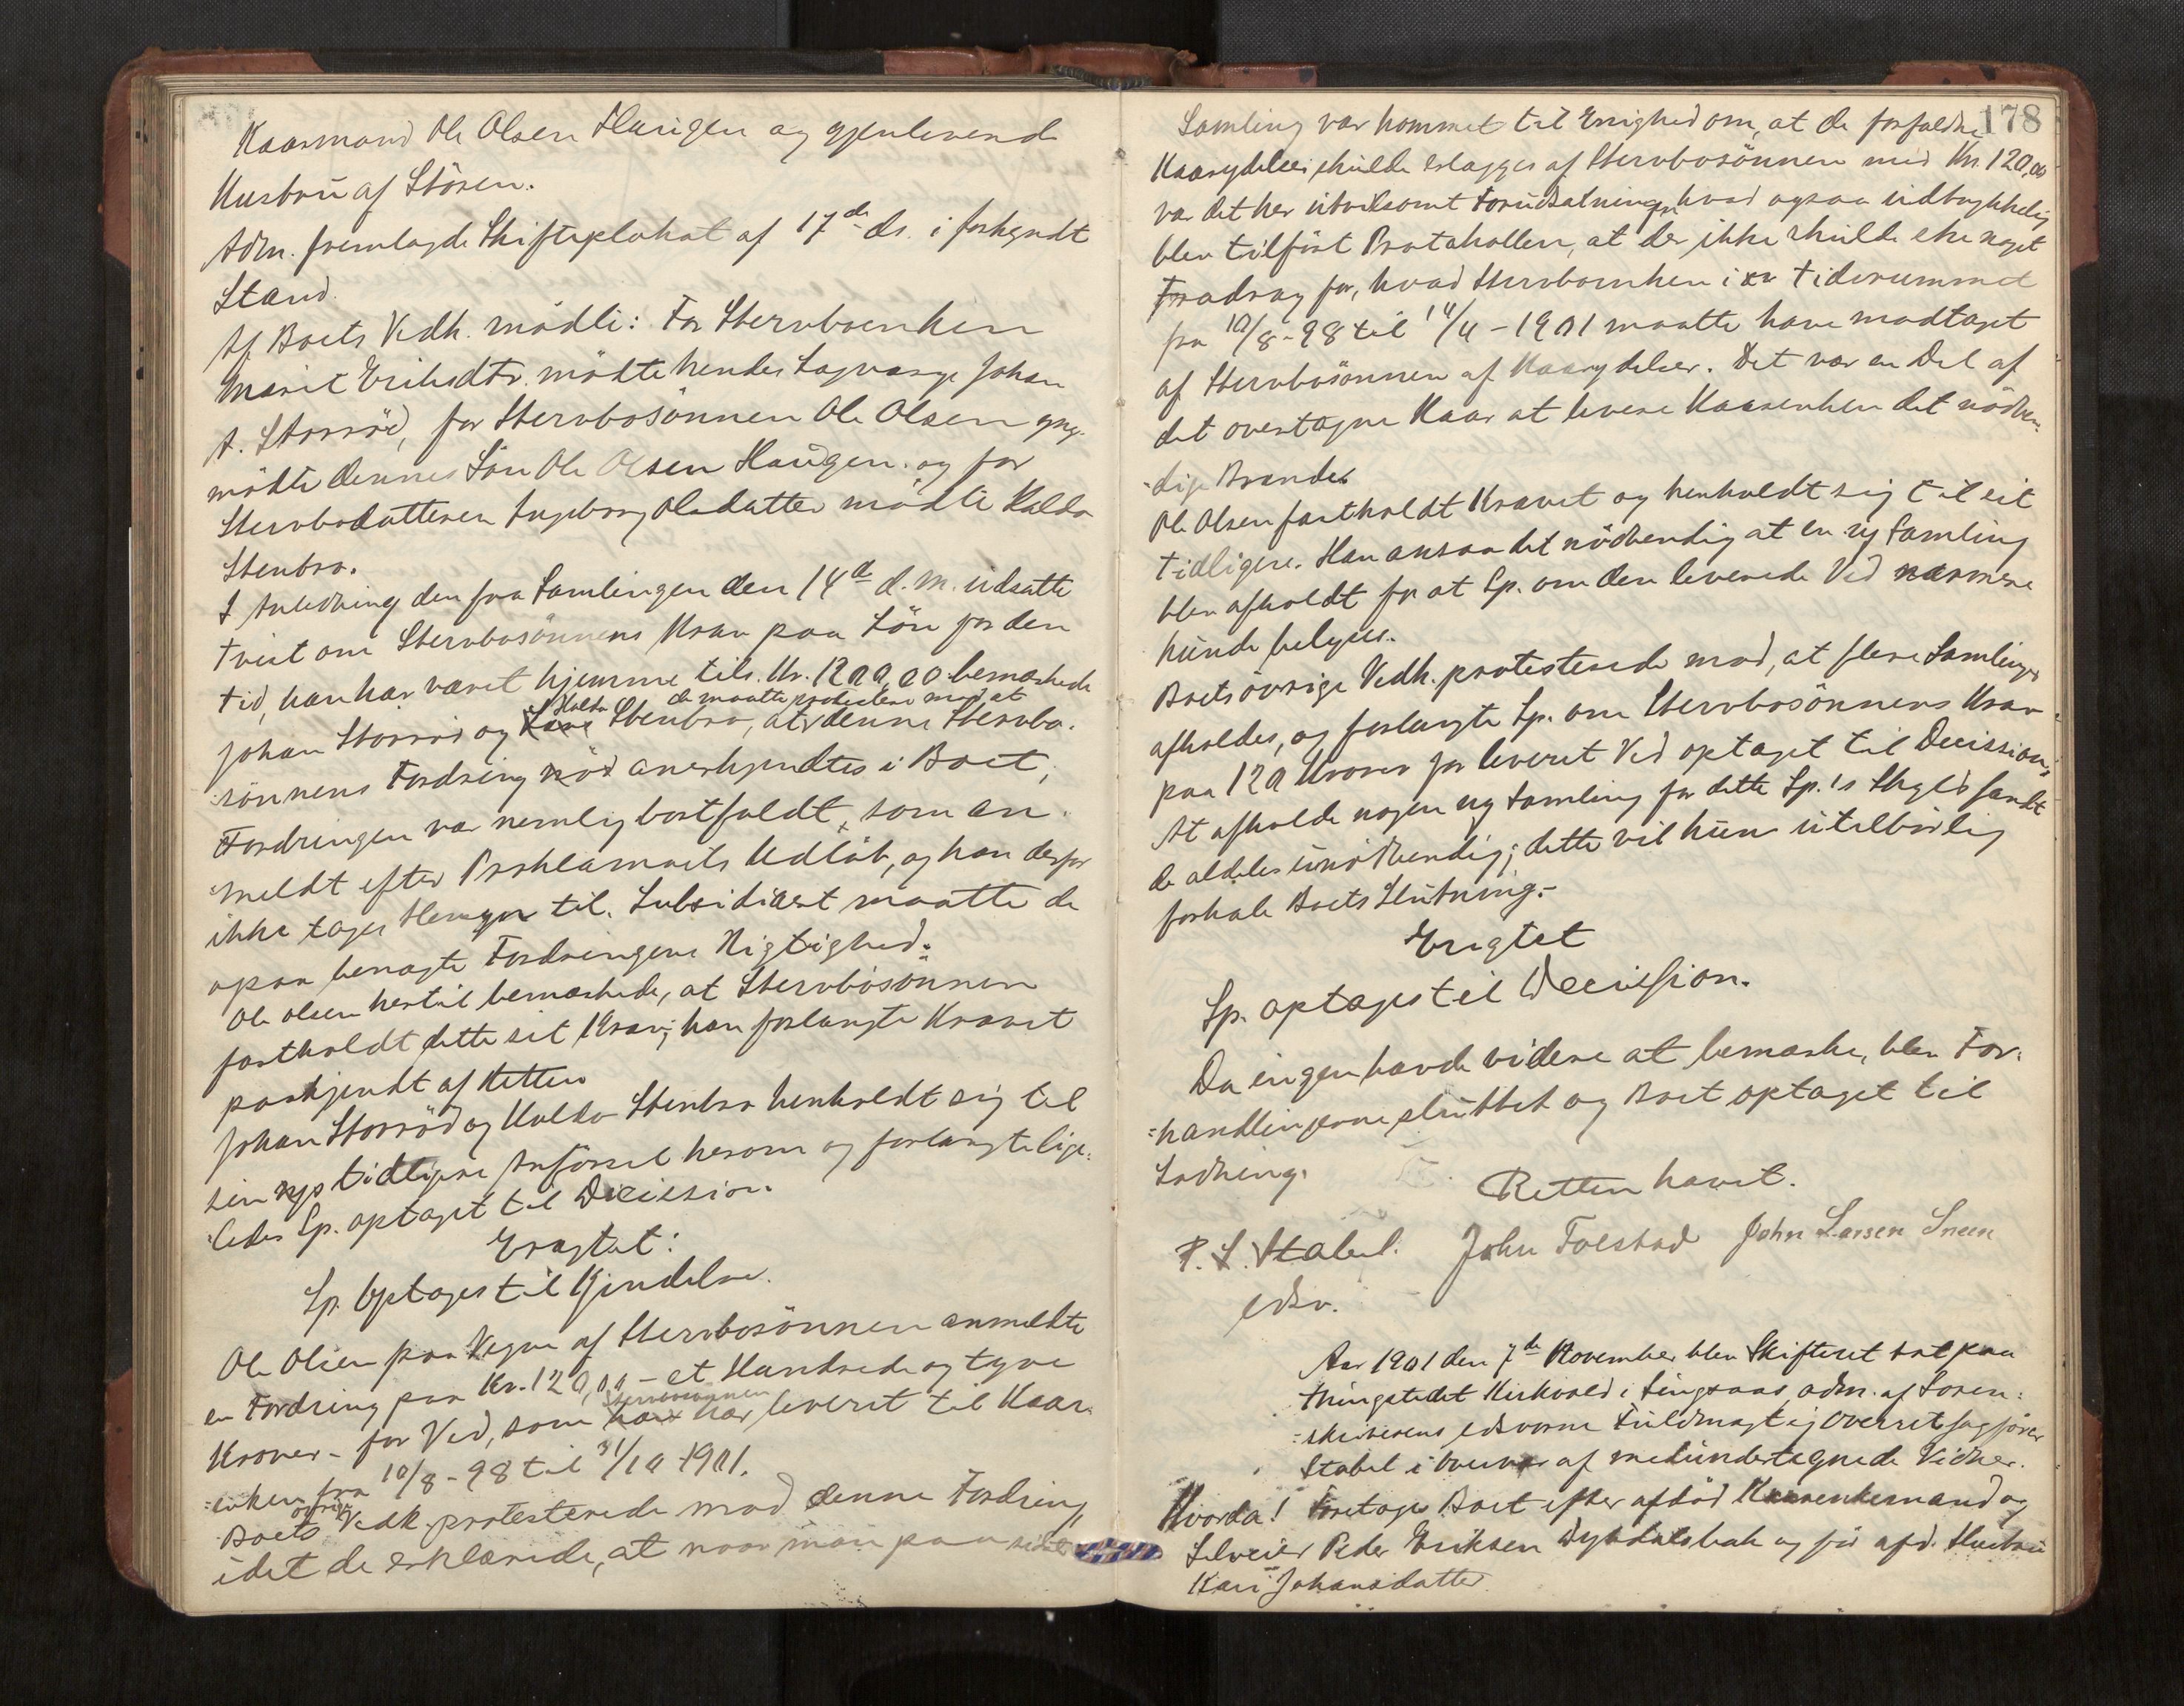 Kaarmand Ole Olsen Haugen og gjenlevende
Hustru af Stören.
Adm. fremlagde Skifteplakat af 17de ds. i forkyndt
Stand.
Af Boets Vedk. mödte: For Stervboenken
Marit Eriksdtr. mödte hendes Lagværge Johan
A. Storröd, for Stervbosönnen Ole Olsen
mödte dennes Sön Ole Olsen Haugen og for
Stervbodatteren Ingeborg Olsdatter mödte Haldo
Stenbro.
I Anledning den fra Samlingen den 14de d. M. udsatte
Tvist om Stervbosönnens Krav paa Lön for den
tid, han har været hjemme tils. Kr. 1200,00 bemærkede
Haldo de maatte protestere mod at
Johan Storröd og Stenbro, at denne Stervbo-
sönnens Fordring anerkjendtes i Boet,
Fordringen var nemlig bortfaldt, som an-
meldt efter Proklamaets Udlöb, og kan derfor
ikke tages Hensyn til. Subsidiært maatte de
ogsaa benægte Fordringens Rigtighed.
Ole Olsen hertil bemærkede, at Stervbosönnen
fastholdt dette sit Krav; han forlangte Kravet
paakjendt af Retten
Johan Storröd og Haldo Stenbro henholdt sig til
sin tidligere Anförsel herom og forlangte lige-
ledes Sp. optaget til Decission.
Eragtet:
Sp. Optages til Kjendelse.
Ole Olsen paa Vegne af Stervbosönnen anmeldte
en Fordring paa Kr. 120,00 - et Hundrede og tyve
Stervbosönnen
Kroner - for Ved, som har leveret til Kaar-
enken fra 10/8-98 til 31/10 1901.
övrige
Boets Vedk. protesterede mod denne Fordring,
idet de erklærede, at naar man paa sidste
178
Samling var kommet til Enighed om, at de forfaldne
Kaarydelser skulde erlægges af Stervbosönnen med Kr. 120,00
var det her utvilsomt Forudsætningen, hvad ogsaa udtrykkelig
blev tilfört Protokollen, at der ikke skulde ske noget
Fradrag for, hvad Stervboenken i tidsrummet
fra 10/8-98 til 14/ -1901 maatte have modtaget
af Stervbosönnen af Kaarydelser. Det var en Del af
det overtagne Kaar at levere Kaarenken det nödven-
dige Brænde.
Ole Olsen fastholdt Kravet og henholdt sig til sit
tidligere. Han ansaa det nödvendig at en ny Samling
blev afholdt for at Sp. om den leverede Ved nærmere
kunde belyses.
Boets övrige Vedk. protesterede mod, at flere Samlinger
afholdes, og forlangte Sp. om Stervbosönnens Krav
paa 120 Kroner for leveret Ved optaget til Decission.
At afholde nogen ny Samling for dette Sp.'s Skyld fandt
de aldeles unödvendig; dette vil kun utilbörlig
forhale Boets Slutning.-
Eragtet
Sp. optages til Decission.
Da ingen havde videre at bemærke, blev For-
handlingerne sluttet og Boet optaget til
Lodning.
Retten hævet.
P. S. Stabel. John Folstad John Larsen Sneen
edsv.
Aar 1901 den 7de November blev Skifteret sat paa
thingstedet Kirkvold i Singsaas adm. af Soren-
skriverens edsvorne Fuldmægtig Overretssagförer
Stabel i Overvær af medundertegnede Vidner.
Hvorda! Foretoges Boet efter afdöd Kaarenkemand og
Selveier Peder Eriksen og för afd. Hustru
Kari Johansdatter